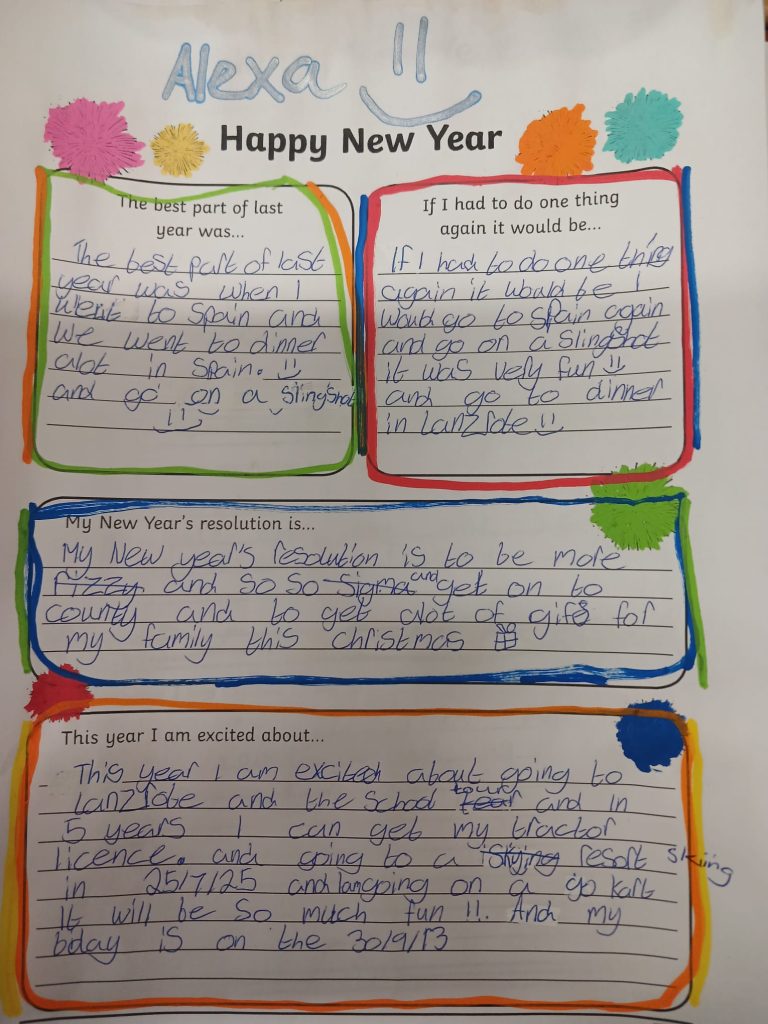 Alexa
Happy New Year
The best part of last
year was...
The best part of last
year was when I
went to Spain and
we went to dinner
alot in Spain.
and go on a slingshot
If I had to do one thing
again it would be...
If I had to do one thing
again it would be I
would go to Spain again
and go on a Slingshot
it was very fun
and go to dinner
in lanzrote
My New Year's resolution is...
My New year's resolution is to be more
Fizzy and So So Sigma and get on to
county and to get alot of gifs for
my family this christmas
This year I am excited about...
This year I am excited about going to
lanzrote and the school tour and in
5 years I can get my tractor
licence. and going to a resort skiing
in 25/7/25 and going on a go kart
It will be so much fun !!. And my
bday is on the 30/9/13